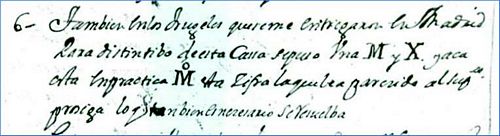 6- Tambien en los Angeles que se me entregaron en Madrid
para distintibo de esta Casa se puso Una M y X, y aca
esta en practica M esta Zifra la qual ha parecido al Sup.or
prosiga lo q tambien es necesario se resuelba